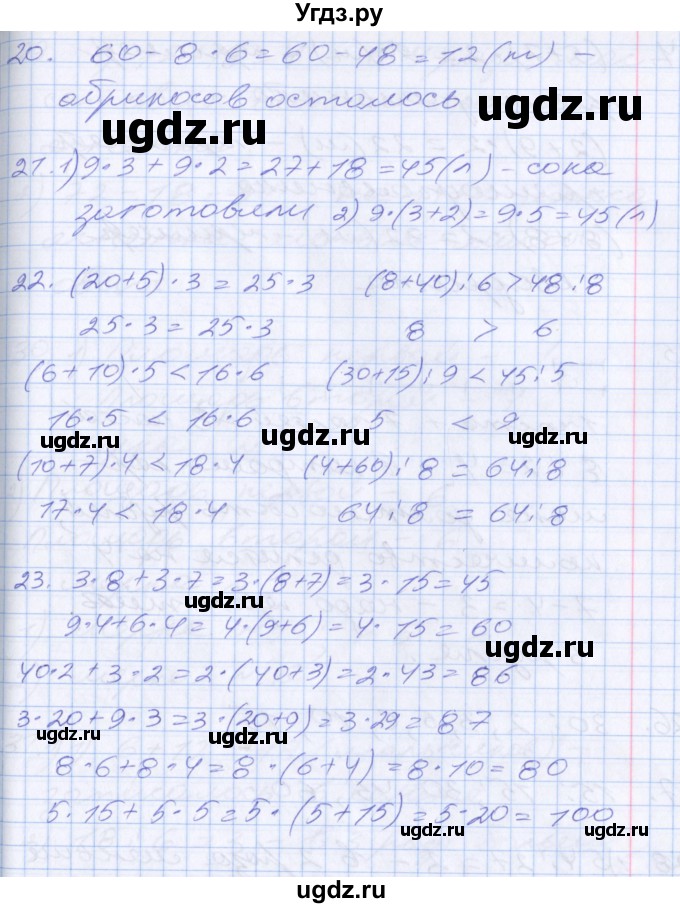 Угдз.ру
20. 60 - 8 · 6 = 60 - 48 = 12 (т) -
абрикосов осталось
ugdz.ru ugdz.ru
21. 1) 9 · 3 + 9 · 2 = 27 + 18 = 45 (л) - сока
заготовили 2) 9 · (3 + 2) = 9 · 5 = 45 (л)
ugdz.ru ugdz.ru
22. (20 + 5) · 3 = 25 · 3 (8 + 40) : 6 > 48 : 8
25 · 3 = 25 · 3 8 > 6
(6 + 10) · 5 < 16 · 6 (30 + 15) : 9 < 45 : 5
16 · 5 < 16 · 6 5 < 9
ugdz.ru ugdz.ru ugdz.ru
(10 + 7) · 4 < 18 · 4 (4 + 60) : 8 = 64 : 8
17 · 4 < 18 · 4 64 : 8 = 64 : 8
23. 3 · 8 + 3 · 7 = 3 · (8 + 7) = 3 · 15 = 45
ugdz.ru
9 · 4 + 6 · 4 = 4 · (9 + 6) = 4 · 15 = 60
ugdz.ru
40 · 2 + 3 · 2 = 2 · (40 + 3) = 2 · 43 = 86
3 · 20 + 9 · 3 = 3 · (20 + 9) = 3 · 29 = 87
ugdz.ru ugdz.ru
8 · 6 + 8 · 4 = 8 · (6 + 4) = 8 · 10 = 80
5 · 15 + 5 · 5 = 5 · (5 + 15) = 5 · 20 = 100
ugdz.ru ugdz.ru
ugdz.ru